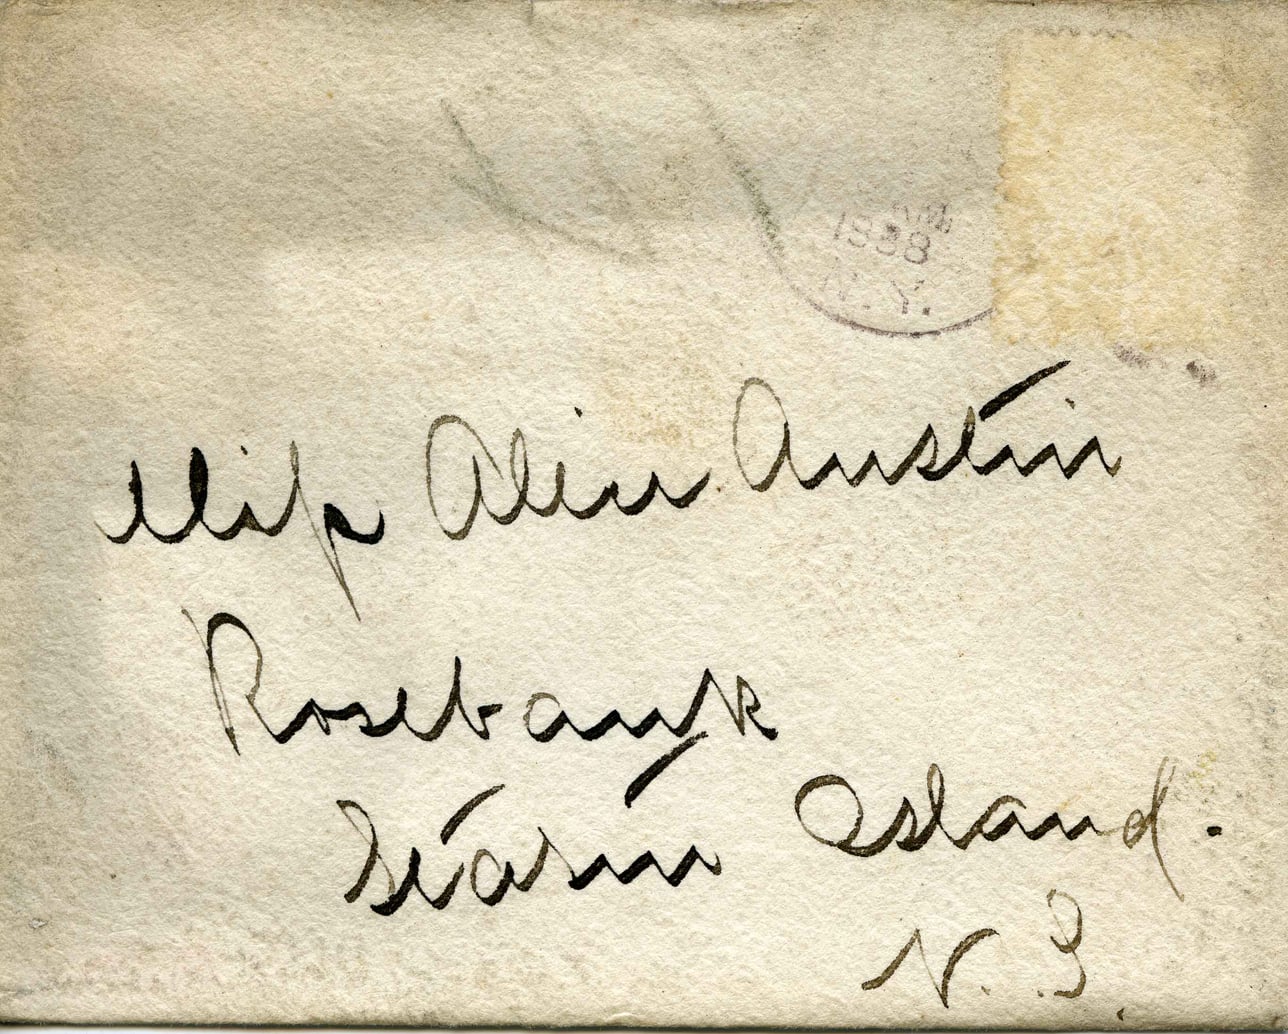 1898
N.Y.
Miss Alice Austin
Rosebank
Staten Island.
N.Y.